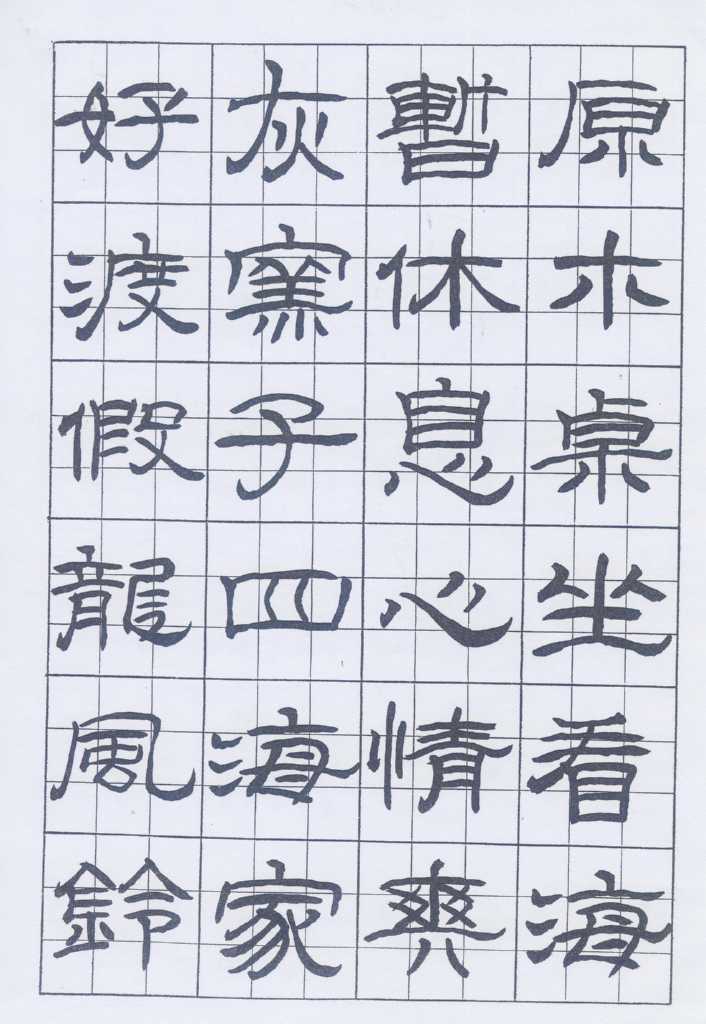 原木桌坐看海
暫休息心情爽
灰窯子四海家
好渡假龍風鈴